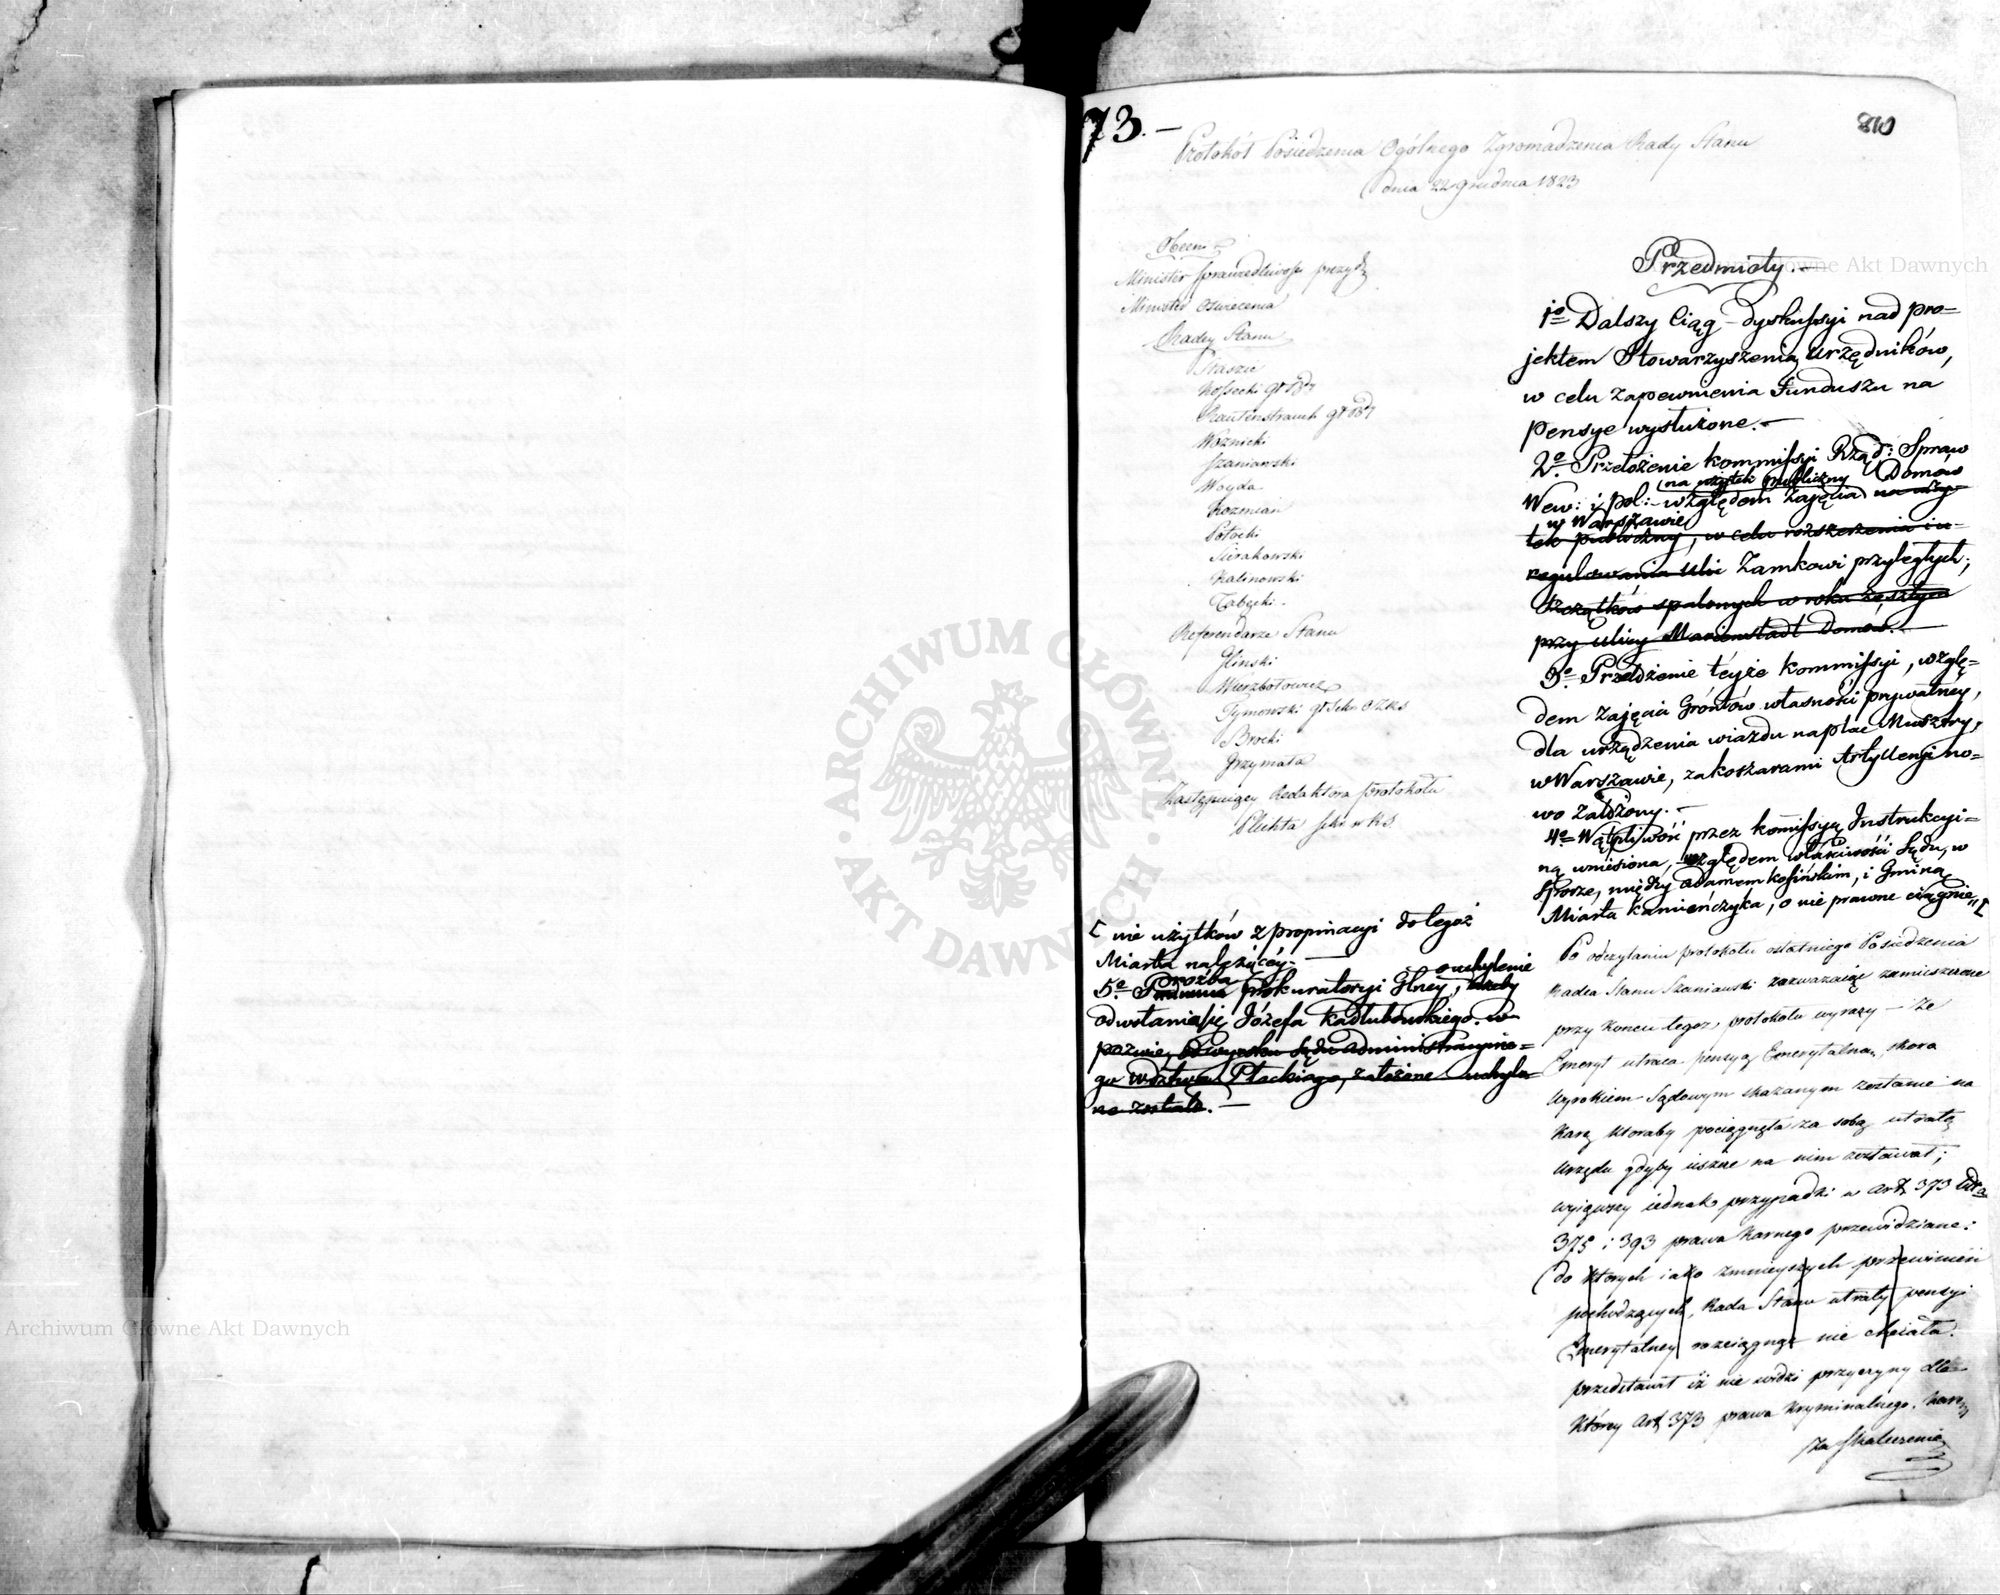 73. —
810
Protokół Posiedzenia Ogólnego Zgromadzenia Rady Stanu
dnia 22 grudnia 1823
Obecni
Minister Sprawiedliwości prezyd
Minister Oświecenia
Radcy Stanu
Staszic
Kossecki
Rautenstrauch
Woźnicki
Szaniawski
Woyda
Kozmian
Potocki
Sierakowski
Kalinowski
Tabęcki
Referendarze Stanu
Gliński
Wierzbołowicz
Tymowski
Brocki
Grzymała
Zastępuiący Redaktora protokołu
Pluhta
Przedmioty. —
1o Dalszy Ciąg dyskussyi nad pro=
jektem Stowarzyszenia Urzędników,
w celu zapewnienia Funduszu na
pensye wysłużone. —
2o Przełożenie kommissyi Rząd: Spraw
na użytek publiczny Domów
Wew: i pol: względem Zajęcia na uży=
w Warszawie
tek publiczny, w celu rozszerzenia i u=
regulowania Ulic Zamkowi przyległych;
Szczątków spalonych w roku zeszłym
przy ulicy Marienstadt Domów. —
3o Przełożenie teyże kommissyi, wzglę=
dem Zajęcia Gróntów własności prywatney,
dla urządzenia wiazdu na plac Musztry,
w Warszawie, za koszarami Artylleryi no=
wo założony. —
4o Wątpliwość przez kommissyą Instrukcyi=
ną wniesiona, względem właściwości Sądu, w
Sporze, między Adamem Kosińskim, i Gminą
Miasta Kamieńczyka, o nie prawne ciągnie„[
[ nie użytków z propinacyi do tegoż
Miasta należącéy. —
prośba o uchylenie
5o Prokuratoryi Glney, ażeby
odwołania się Józefa Kadłubowskiego. w
pozwie, od wyroku Sądu Administracyine=
go Wdztwa Płockiego, założone uchylo=
ne zostało. —
Po odczytaniu protokołu ostatniego Posiedzenia
Radca Stanu Szaniawski zazważaiąc zamieszczone
przy końcu tegoż protokołu wyrazy — Ze
Emeryt utraca pensyą Emerytalną, skoro
Wyrokiem Sądowym skazanym zostanie na
Karę któraby pociągnęła za sobą utratę
Urzędu gdyby ieszcze na nim zostawał;
wyiąwszy iednak przypadki w art 373
375 i 393 prawa Karnego przewidziane:
do których iako zmnieyszych przewinień
pochodzących, Rada Stanu utraty pensyi
Emerytalney rozciągnąć nie chciała.
przedstawił iż nie widzi przyczyny dla
którey Art 373 prawa Kryminalnego,
za skaleczenie